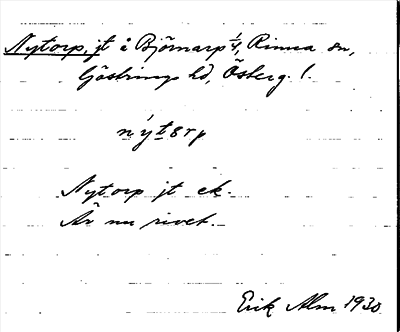 Nytorp, jt å Björnarp 1/4, Rinna sn,
Göstrings hd, Österg. l.
nýtɛrp
Nytorp jt ek.
Är nu rivet.
Erik Alm 1930